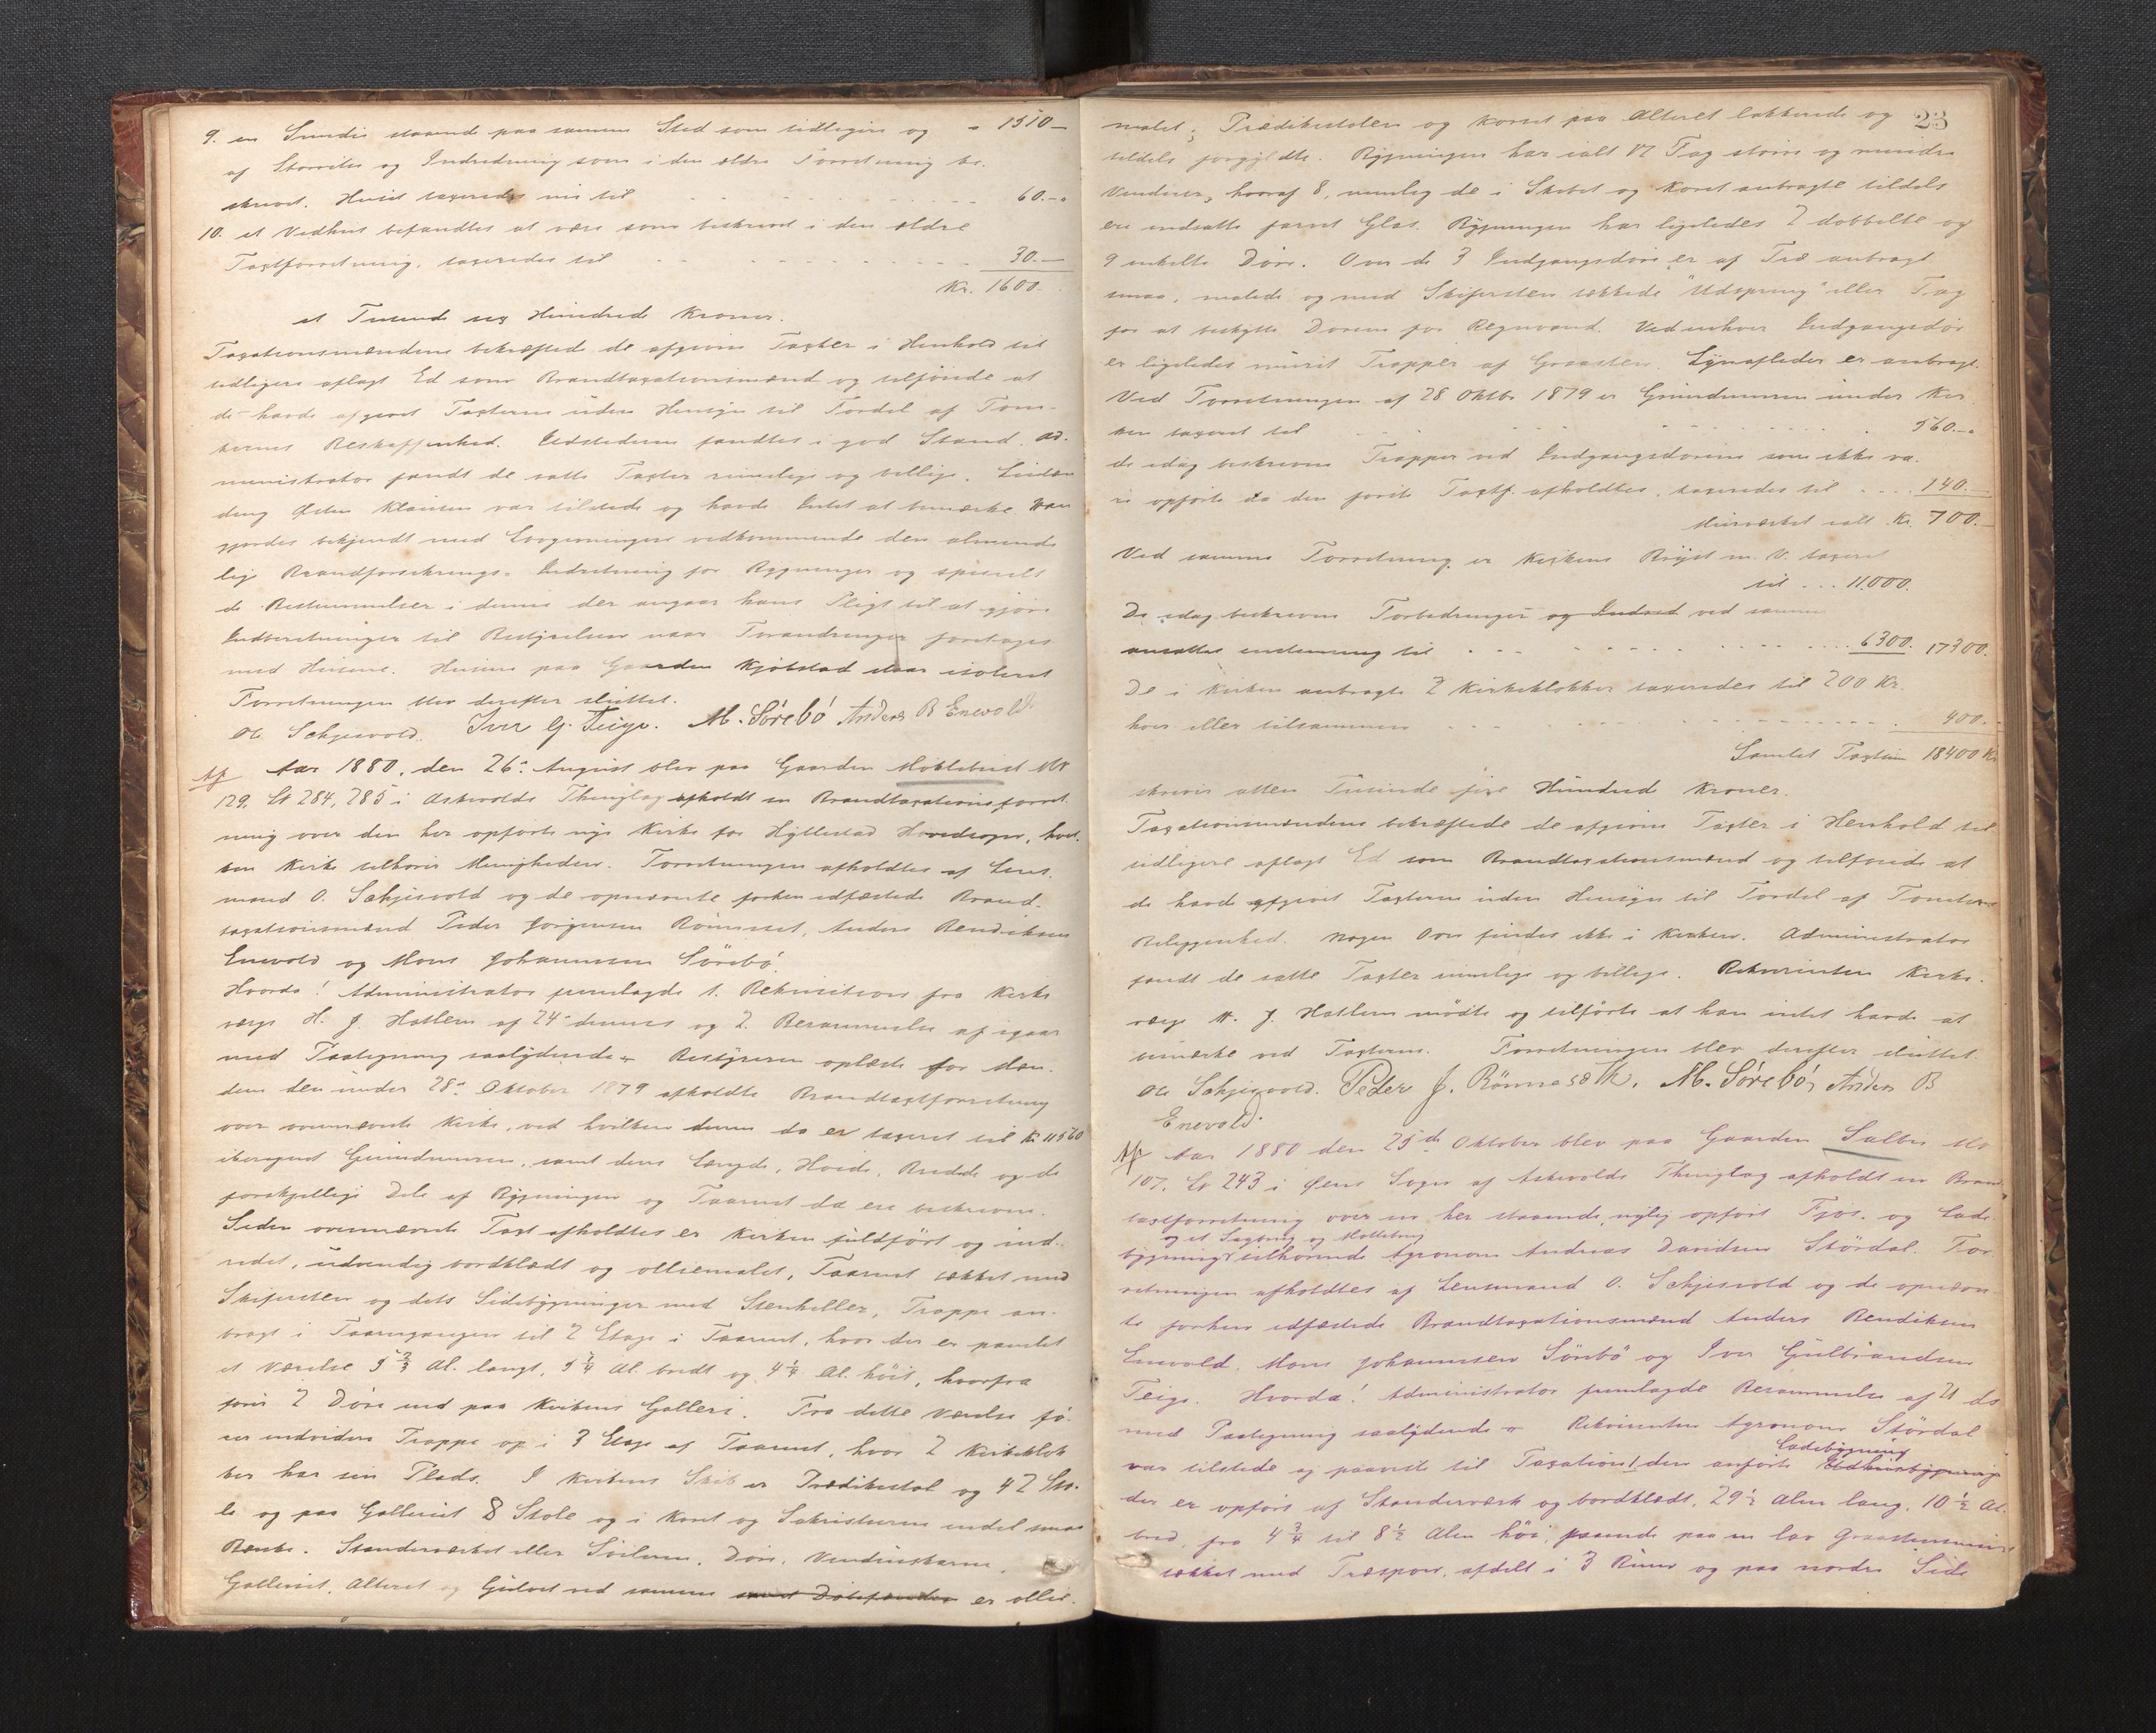 9. en Smedie staaende paa samme Sted som tidligere og " 1510 –
af Størrelse og Indredning som i den ældre Forretning be-
skrevet. Huset taxeredes nu til 60.-"
10. et Vedhus befandtes at være som beskrevet i den ældre
Taxtforretning, taxeredes til 30.—
Kr. 1600.
et Tusende sex Hundrede Kroner.
Taxationsmændene bekræftede de afgivne Taxter i Henhold til
tidligere aflagt Ed som Brandtaxationsmænd og tilføiede at
de havde afgivet Taxterne uden Hensyn til Fordel af Tom-
ternes Beskaffenhed. Ildstederne fandtes i god Stand. Ad-
ministrator fandt de satte Taxter rimelige og billige.
Østen Klausen var tilstede og havde Intet at bemærke. Han
gjordes bekjendt med Lovgivningen vedkommende den alminde
lige Brandforsikrings-Indretning for Bygninger og specielt
de Bestemmelser i denne der angaar hans Pligt til at gjøre
Indberetninger til Bestyrelsen naar Forandringer foretages
med Husene. Husene paa Gaarden Kjølstad staar isoleret
Forretningen blev derefter sluttet.
Ol Schjesvold. Iver G. Teige. M. Sørebö Anders B Enevold
Afs Aar 1880, den 26de August blev paa Gaarden Myklebust M
129. Lb 284, 285 i Askevolds Thinglag afholdt en Brandtaxationsforret
ning over den her opførte nye Kirke for Hyllestad Hovedsogn, hvil-
ken Kirke tilhører Menigheden. Forretningen afholdtes af Lens-
mand O. Schjesvold og de opnævnte forhen edfæstede Brand-
taxationsmænd Peder Jørgensen Rönneset, Anders Bendiksen
Enevold og Mons Johannesen Sörebö.
Hvorda! Administrator fremlagde 1. Rekvisition fra Kirke
værge H. J. Hatlem af 24de dennes og 2. Berammelse af igaar
med Paategning saalydende ... Bestyreren oplæste for Mæn-
dene den under 28de Oktober 1879 afholdte Brandtaxtforretning
over ovennævnte Kirke, ved hvilken denne da er taxeret til Kr 11560
iberegnet Grundmuren, samt dens Længde, Høide, Bredde og de
forskjellige Dele af Bygningen og Taarnet da ere beskrevne.
Siden ovennævnte Taxt afholdtes er Kirken fuldført og ind-
redet, udvendig bordklædt og olliemalet, Taarnet tækket med
Skifersten og dets Sidebygninger med Stenheller, Trappe an-
bragt i Taarngangen til 2 Etage i Taarnet, hvor der er panelet
et Værelse 5 2/3 Al. langt, 5 3/4 Al. bredt og 4 1/4 Al. höit, hvorfra
fører 2 Døre ind paa Kirkens Galleri. Fra dette Værelse fö-
rer endvidere Trappe op i 3 Etage af Taarnet, hvor 2 Kirkeklok
ker har sin Plads. I Kirkens Skib er Prædikestol og 42 Sto-
le og paa Galleriet 8 Stole og i Koret og Sakristierne endel smaa
Bænke. Standerværket eller Söilerne, Döre, Vindueskarme,
Galleriet, Alteret og Gulvet ved samme samt Döbefonden er ollie-
23
malet; Prædikestolen og Korset paa Alteret lakkerede og
tildels forgyldte. Bygningen har ialt 17 Fag større og mindre
Vinduer, hvoraf 8, nemlig de i Skibet og Koret anbragte tildels
ere indsatte farvet Glas. Bygningen har ligeledes 2 dobbelte og
9 enkelte Döre. Over de 3 Indgangsdöre er af Træ anbragt
smaa, malede og med Skifersten tækkede "Udspring" eller Tag
for at beskytte Dörene for Regnvand. Ved enhver Indgangsdör
er ligeledes muret Trapper af Graasten. Lynafleder er anbragt.
Ved Forretningen af 28 Oktbr 1879 er Grundmuren under Kir
ken taxeret til 560.-"
de idag beskrevne Trapper ved Indgangsdörene som ikke va-
re opførte da den forste Taxtf. afholdtes, taxeredes til 140.—
Murværket ialt Kr. 700.—
Ved samme Forretning er Kirkens Bygst m. V. taxeret
til ... 11000.
De idag beskrevne Forbedringer og Indred ved samme
ansattes enstemmig til 6300. 17300.
De i Kirken anbragte 2 Kirkeklokker taxeredes til 200 Kr.
hver eller tilsammen 400.-
Samlet Taxtsum 18400 Kr
skriver atten Tusinde fire Hundred Kroner.
Taxationsmændene bekræftede de afgivne Taxter i Henhold til
tidligere aflagt Ed som Brandtaxationsmænd og tilføiede at
de havde afgivet Taxterne uden Hensyn til Fordel af Tomternes
Beliggenhed. Nogen Ovn findes ikke i Kirken. Administrator
fandt de satte Taxter rimelige og billige. Rekvirenten Kirke-
værge H. J. Hatlem mödte og tilførte at han intet havde at
bemærke ved Taxterne. Forretningen blev derefter sluttet.
Ol Schjesvold. Peder J. Rönnesæth. M. Sørebö, Anders B
Enevold.
Afs Aar 1880 den 25de Oktober blev paa Gaarden Salbu M
107. Lb 243 i Øens Sogn af Askevolds Thinglag afholdt en Brand
taxtforretning over en her staaende, nylig opført Fjös- og Lade-
og et Sagbrug og Møllebrug
bygning tilhørende Agronom Andreas Davidsen Stördal. For
retningen afholdtes af Lensmand O. Schjesvold og de opnævn
te forhen edfæstede Brandtaxationsmænd Anders Bendiksen
Enevold, Mons Johannesen Sörebö og Iver Gulbrandsen
Teige. Hvorda! Administrator fremlagde Berammelse af 21 ds
med Paategning saalydende ... Rekvirenten Agronom Stördal
Ladebygning
var tilstede og paaviste til Taxation 1, den anførte Udhusbygning
der er opført af Standerværk og bordklædt, 29 1/2 Alen lang, 10 1/2 Al.
bred, fra 4 3/4 til 8 1/2 Alen höi, staaende paa en lav Graastensmur
tækket med Træspon, afdelt i 3 Rum og paa nordre Side